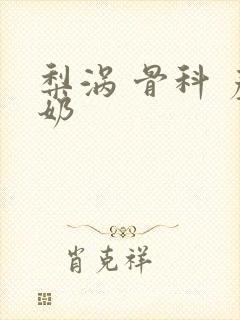 梨涡 骨科
奶
肖克祥